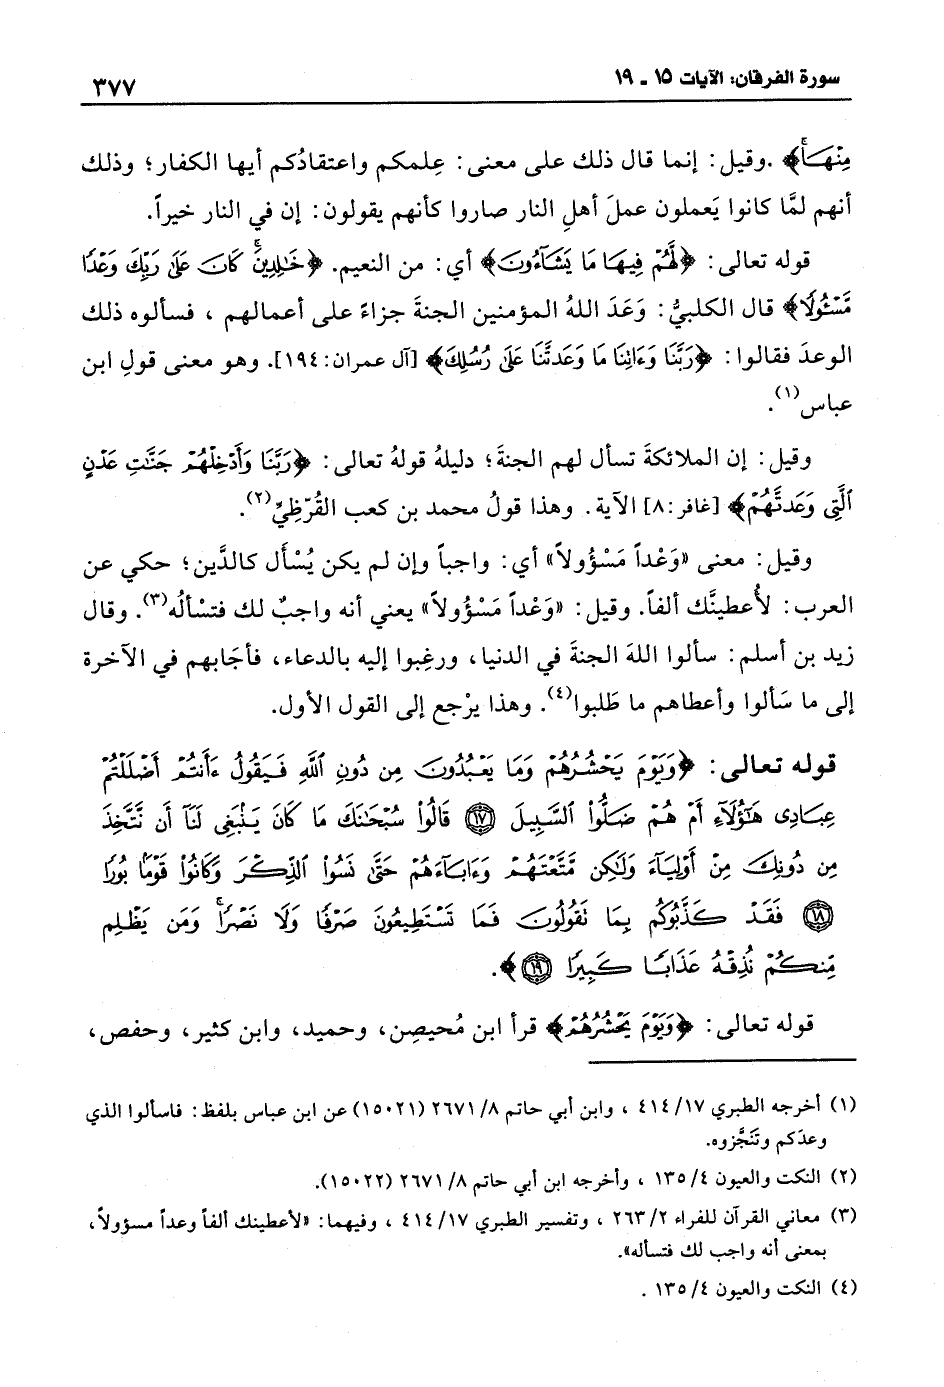 سورة الفرقان: الآيات ١٥ - ١٩
٣٧٧
مِنْهَاۚ﴾. وقيل: إنما قال ذلك على معنى: عِلمكم واعتقادُكم أيها الكفار؛ وذلك
أنهم لمَّا كانوا يَعملون عملَ أهلِ النار صاروا كأنهم يقولون: إن في النار خيراً.
قوله تعالى: ﴿لَّهُمْ فِيهَا مَا يَشَآءُونَ﴾ أي: من النعيم. ﴿خَٰلِدِينَۚ كَانَ عَلَىٰ رَبِّكَ وَعْدًا
مَّسْـُٔولًا﴾ قال الكلبيُّ: وَعَدَ اللهُ المؤمنين الجنةَ جزاءً على أعمالهم ، فسألوه ذلك
الوعدَ فقالوا: ﴿رَبَّنَا وَءَاتِنَا مَا وَعَدتَّنَا عَلَىٰ رُسُلِكَ﴾ [آل عمران: ١٩٤]. وهو معنى قولِ ابن
عباس(١).
وقيل: إن الملائكةَ تسأل لهم الجنةَ؛ دليلهُ قولهُ تعالى: ﴿رَبَّنَا وَأَدْخِلْهُمْ جَنَّٰتِ عَدْنٍ
ٱلَّتِى وَعَدتَّهُمْ﴾ [غافر: ٨] الآية. وهذا قولُ محمد بن كعب القُرَظِيِّ(٢).
وقيل: معنى «وَعْداً مَسْؤُولاً» أي: واجباً وإن لم يكن يُسْأَل كالدَّين؛ حكي عن
العرب: لأُعطينَّك ألفاً. وقيل: «وَعْداً مَسْؤُولاً» يعني أنه واجبٌ لك فتسْألُه(٣). وقال
زيد بن أسلم: سألوا اللهَ الجنةَ في الدنيا، ورغِبوا إليه بالدعاء، فأجَابهم في الآخرة
إلى ما سَألوا وأعطاهم ما طَلبوا(٤). وهذا يرْجع إلى القول الأول.
قوله تعالى: ﴿وَيَوْمَ يَحْشُرُهُمْ وَمَا يَعْبُدُونَ مِن دُونِ ٱللَّهِ فَيَقُولُ ءَأَنتُمْ أَضْلَلْتُمْ
عِبَادِى هَٰٓؤُلَآءِ أَمْ هُمْ ضَلُّوا۟ ٱلسَّبِيلَ ١٧ قَالُوا۟ سُبْحَٰنَكَ مَا كَانَ يَنۢبَغِى لَنَآ أَن نَّتَّخِذَ
مِن دُونِكَ مِنْ أَوْلِيَآءَ وَلَٰكِن مَّتَّعْتَهُمْ وَءَابَآءَهُمْ حَتَّىٰ نَسُوا۟ ٱلذِّكْرَ وَكَانُوا۟ قَوْمًۢا بُورًا
١٨ فَقَدْ كَذَّبُوكُم بِمَا تَقُولُونَ فَمَا تَسْتَطِيعُونَ صَرْفًا وَلَا نَصْرًاۚ وَمَن يَظْلِم
مِّنكُمْ نُذِقْهُ عَذَابًا كَبِيرًا ١٩﴾.
قوله تعالى: ﴿وَيَوْمَ يَحْشُرُهُمْ﴾ قرأ ابن مُحيصِن، وحميد، وابن كثير، وحفص،
(١) أخرجه الطبري ١٧/ ٤١٤ ، وابن أبي حاتم ٨/ ٢٦٧١ (١٥٠٢١) عن ابن عباس بلفظ: فاسألوا الذي
وعدَكم وتَنَجَّزوه.
(٢) النكت والعيون ٤/ ١٣٥ ، وأخرجه ابن أبي حاتم ٨/ ٢٦٧١ (١٥٠٢٢).
(٣) معاني القرآن للفراء ٢/ ٢٦٣ ، وتفسير الطبري ١٧/ ٤١٤ ، وفيهما: «لأعطينك ألفاً وعداً مسؤولاً،
بمعنى أنه واجب لك فتسأله».
(٤) النكت والعيون ٤/ ١٣٥ .